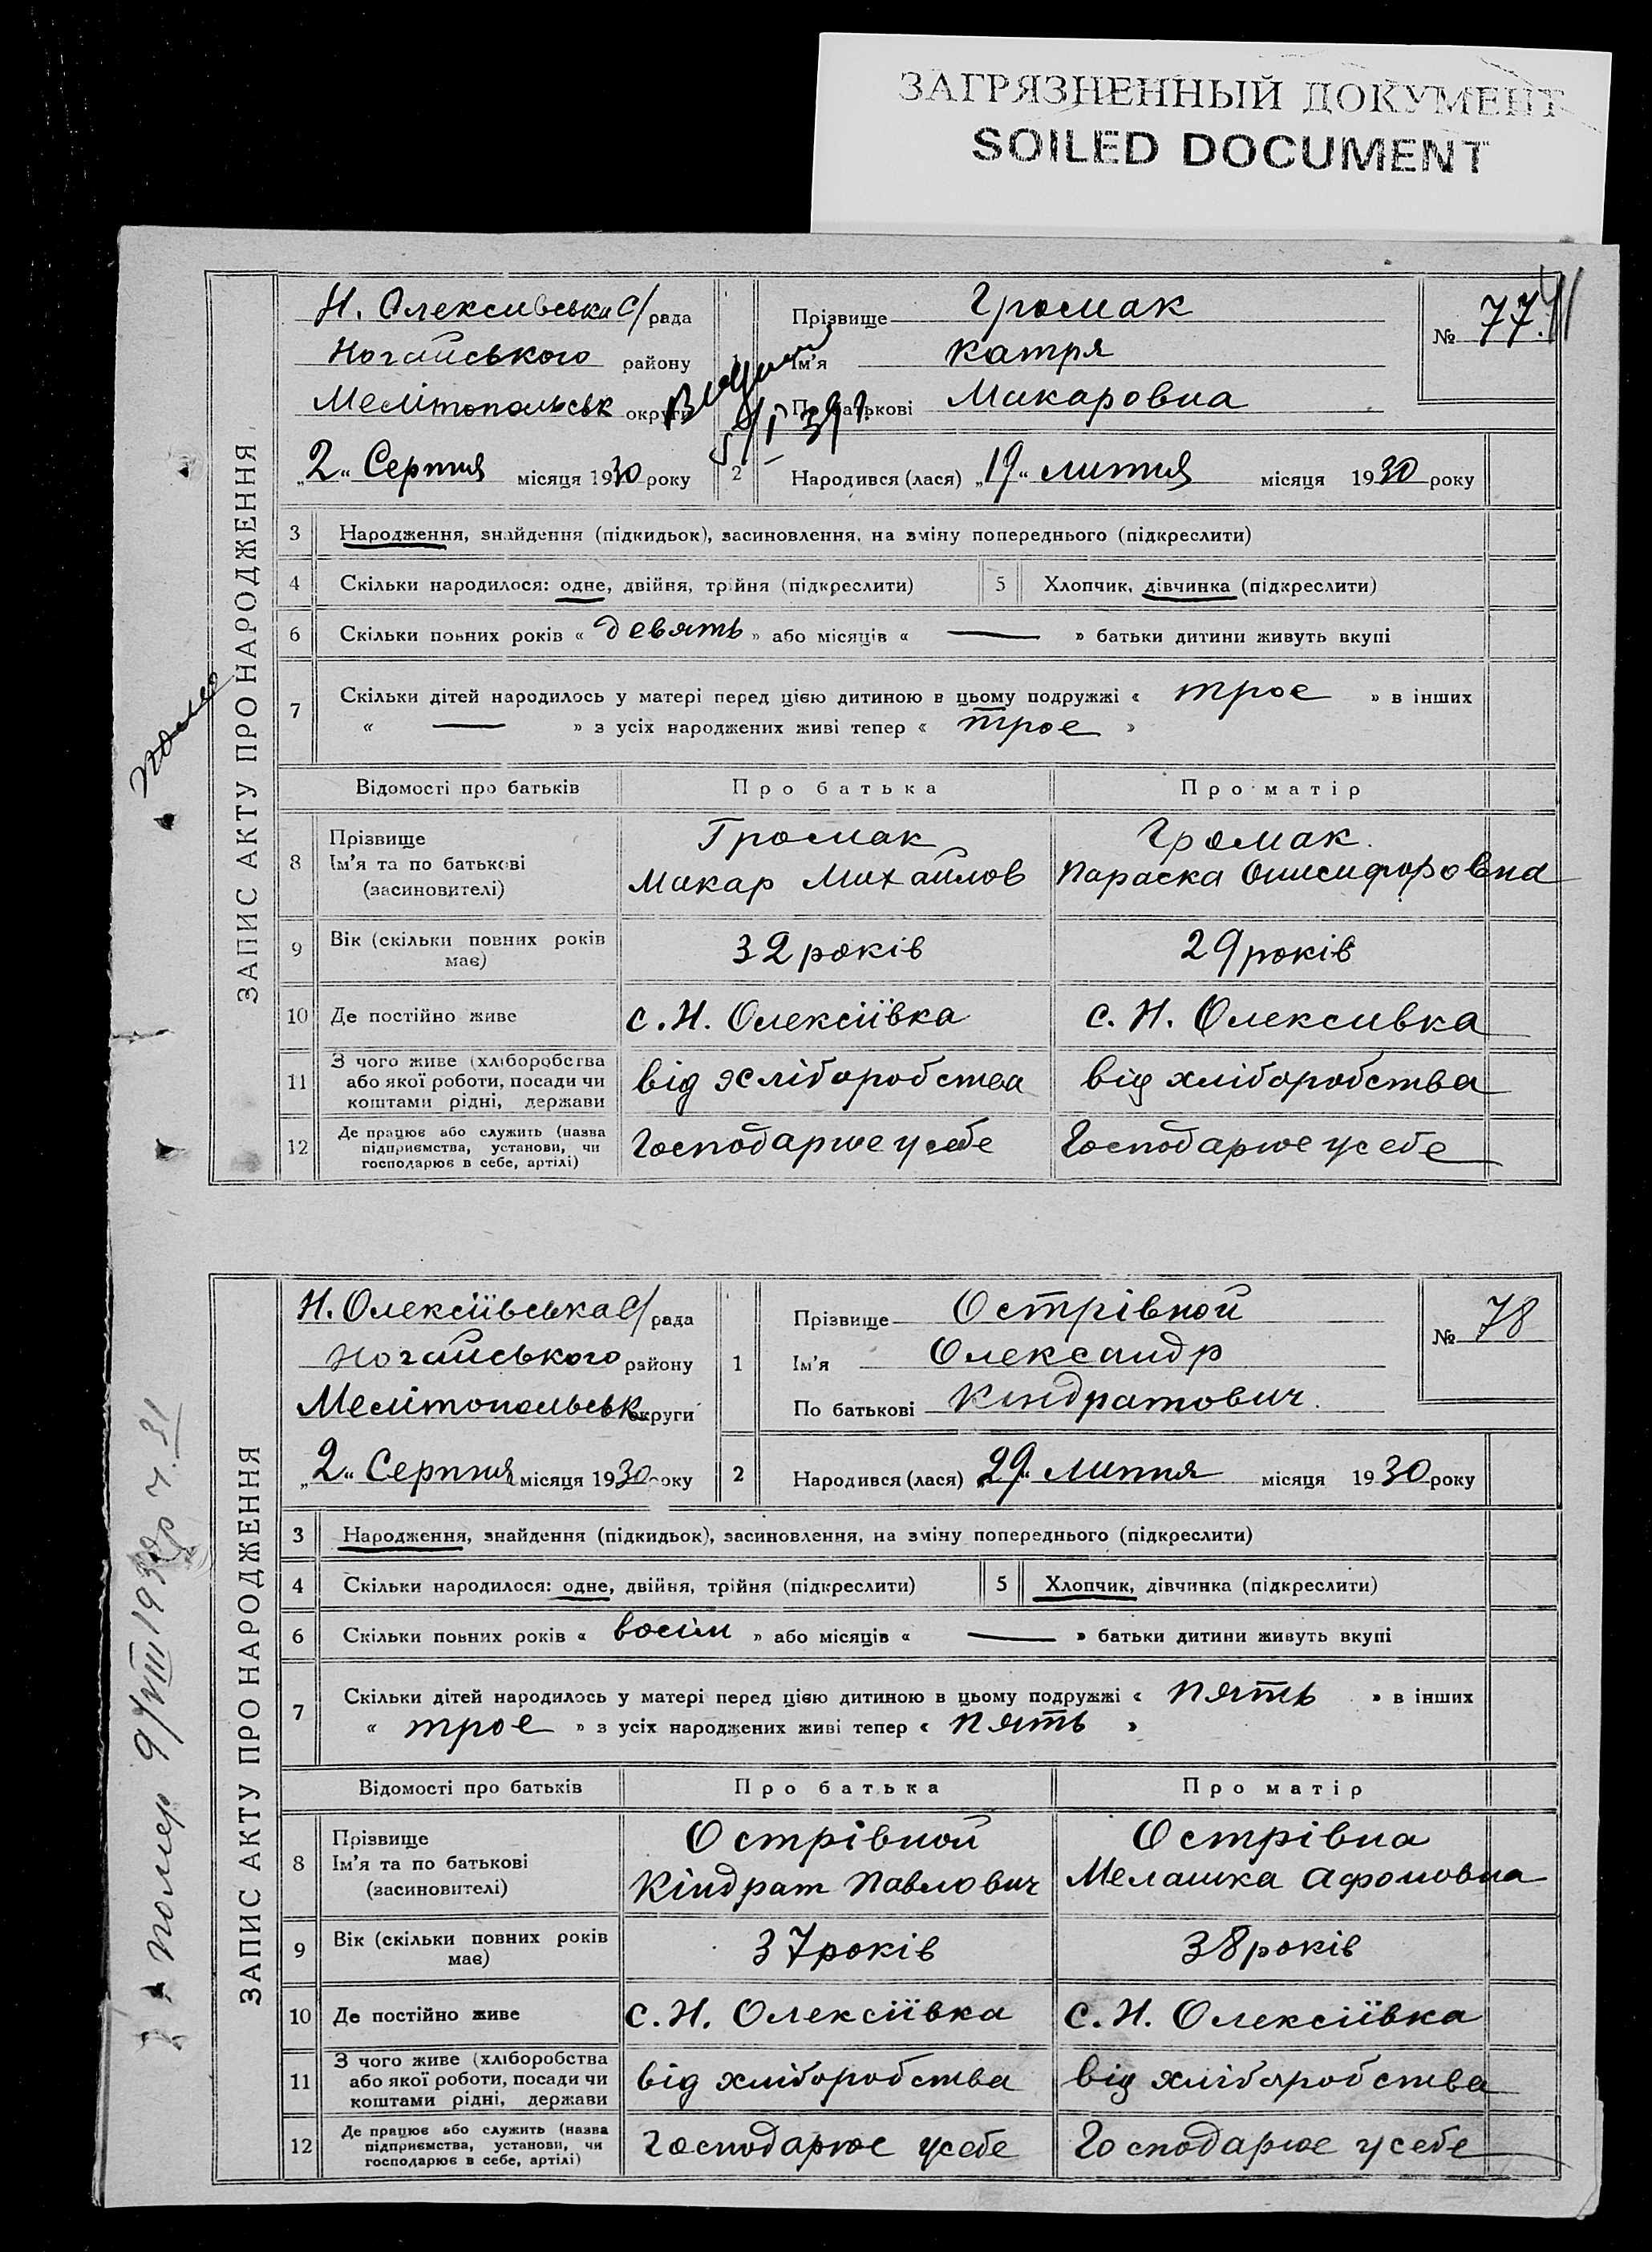 ЗАГРЯЗНЕННЫЙ ДОКУМЕНТ
SOILED DOCUMENT
ЗАПИС АКТУ ПРО НАРОДЖЕННЯ
Н. Олексивська с/рада
Ногайського району
Мелітопольськ округи
„2“ Серпня місяця 1930 року
1 Прізвище Громак
Ім'я Катря
По батькові Макаровна
№ 77
2 Народився (лася) „19“ липня місяця 1930 року
3 Народження, знайдення (підкидьок), засиновлення, на зміну попереднього (підкреслити)
4 Скільки народилося: одне, двійня, трійня (підкреслити) 5 Хлопчик, дівчинка (підкреслити)
6 Скільки повних років « девять » або місяців « — » батьки дитини живуть вкупі
7 Скільки дітей народилось у матері перед цією дитиною в цьому подружжі « трое » в інших
« — » з усіх народжених живі тепер « трое »
Відомості про батьків Про батька Про матір
8 Прізвище
Ім'я та по батькові
(засиновителі)
Громак
Макар Михайлов
Громак.
Параска Онисифоровна
9 Вік (скільки повних років
має)
32 років 29 років
10 Де постійно живе с. Н. Олексіївка с. Н. Олексивка
11 З чого живе (хліборобства
або якої роботи, посади чи
коштами рідні, держави
від хліборобства від хліборобства
12 Де працює або служить (назва
підприємства, установи, чи
господарює в себе, артілі)
Господарює у себе Господарює у себе
ЗАПИС АКТУ ПРО НАРОДЖЕННЯ
помер 9/VIII 1930р ч. 31
Н. Олексіївська с/рада
Ногайського району
Мелітопольськ округи
„2“ Серпня місяця 1930 року
1 Прізвище Острівной
Ім'я Олександр
По батькові Кіндратович.
№ 78
2 Народився (лася) „29“ липня місяця 1930 року
3 Народження, знайдення (підкидьок), засиновлення, на зміну попереднього (підкреслити)
4 Скільки народилося: одне, двійня, трійня (підкреслити) 5 Хлопчик, дівчинка (підкреслити)
6 Скільки повних років « восім » або місяців « — » батьки дитини живуть вкупі
7 Скільки дітей народилось у матері перед цією дитиною в цьому подружжі « пять » в інших
« трое » з усіх народжених живі тепер « пять »
Відомості про батьків Про батька Про матір
8 Прізвище
Ім'я та по батькові
(засиновителі)
Острівной
Кіндрат Павлович
Острівна
Мелашка Афоновна
9 Вік (скільки повних років
має)
37 років 38 років
10 Де постійно живе с. Н. Олексіївка с. Н. Олексіївка
11 З чого живе (хліборобства
або якої роботи, посади чи
коштами рідні, держави
від хліборобства від хліборобства
12 Де працює або служить (назва
підприємства, установи, чи
господарює в себе, артілі)
Господарює у себе Господарює у себе